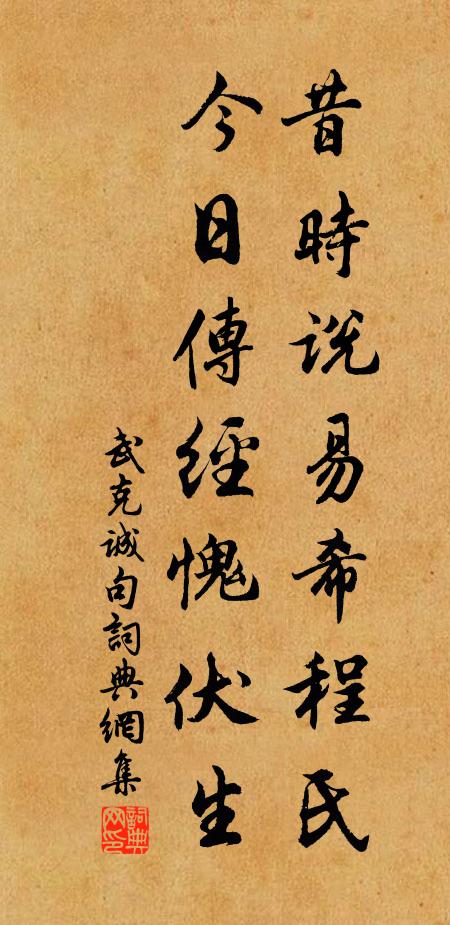 昔時説易希程氏
今日傳經愧伏生
武克诚句詞典網集
詞典網印